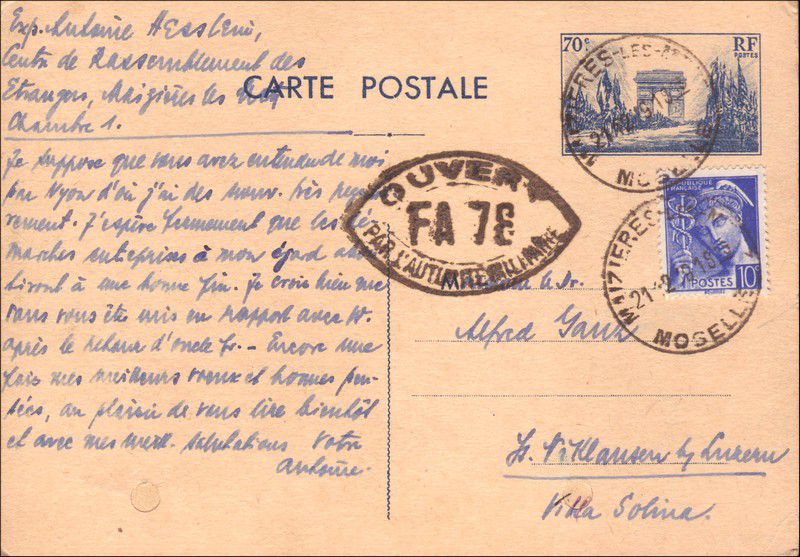 Exp. Antoine Hesslein,
Centre de Rassemblement des
Etrangers, Maizières les Metz
Chambre 1.
CARTE POSTALE
70c
RF
POSTES
MAIZIERES-LES-METZ
MOSELLE
Je suppose que vous avez entendu de moi
par Nyon d'où j'ai des nouv. très
J'espère fermement que les dé-
marches entreprises à mon égard
à une bonne fin. Je crois bien que
vous vous êtes mis en rapport avec
après le retour d'oncle Fr. - Encore une
fois mes meilleurs voeux et bonnes pen-
sées, au plaisir de vous lire bientôt
et avec mes meill. salutations Votre
Antoine.
OUVERT
FA 78
PAR L'AUTORITÉ MILITAIRE
REPUBLIQUE
FRANÇAISE
POSTES
10c
MAIZIERES-LES-METZ
MOSELLE
Dr.
Alfred
St. Niklausen by Luzern
Villa Solina.